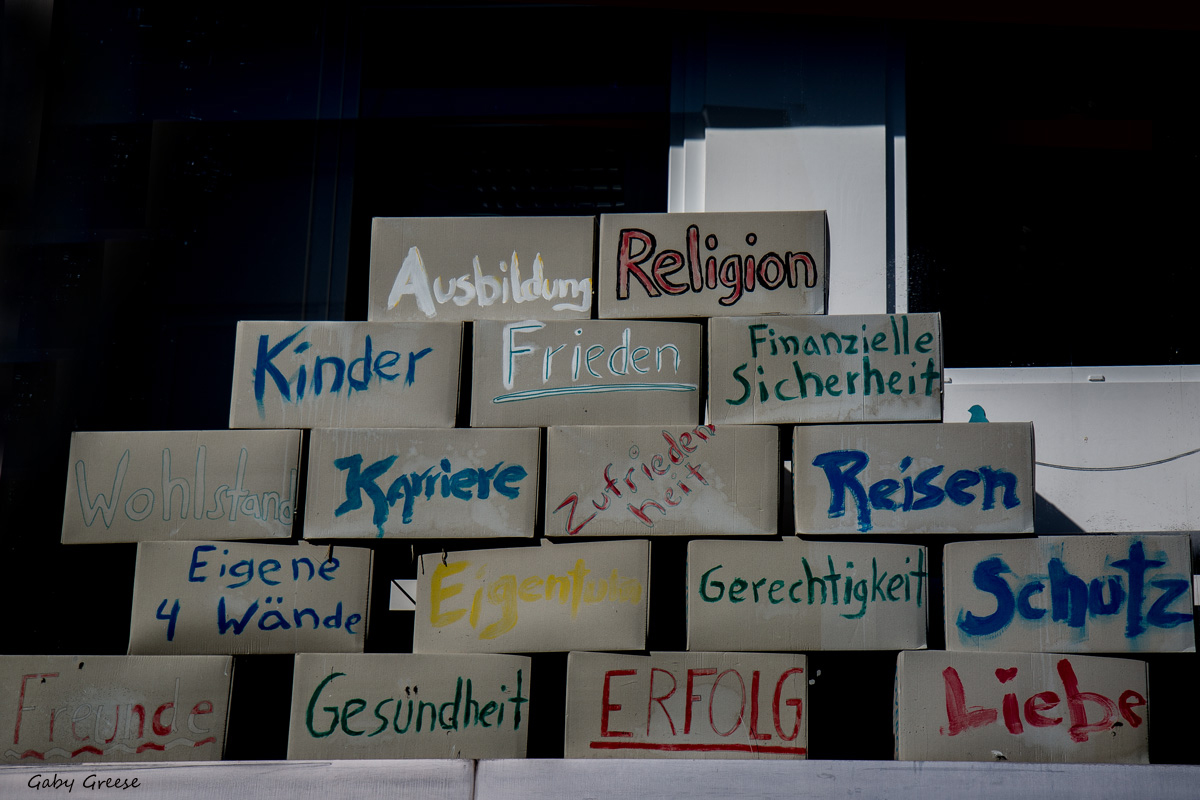 Ausbildung
Religion
Kinder
Frieden
Finanzielle
Sicherheit
Wohlstand
Karriere
Zufrieden
heit
Reisen
Eigene
4 Wände
Eigentum
Gerechtigkeit
Schutz
Freunde
Gesündheit
ERFOLG
Liebe
Gaby Greese